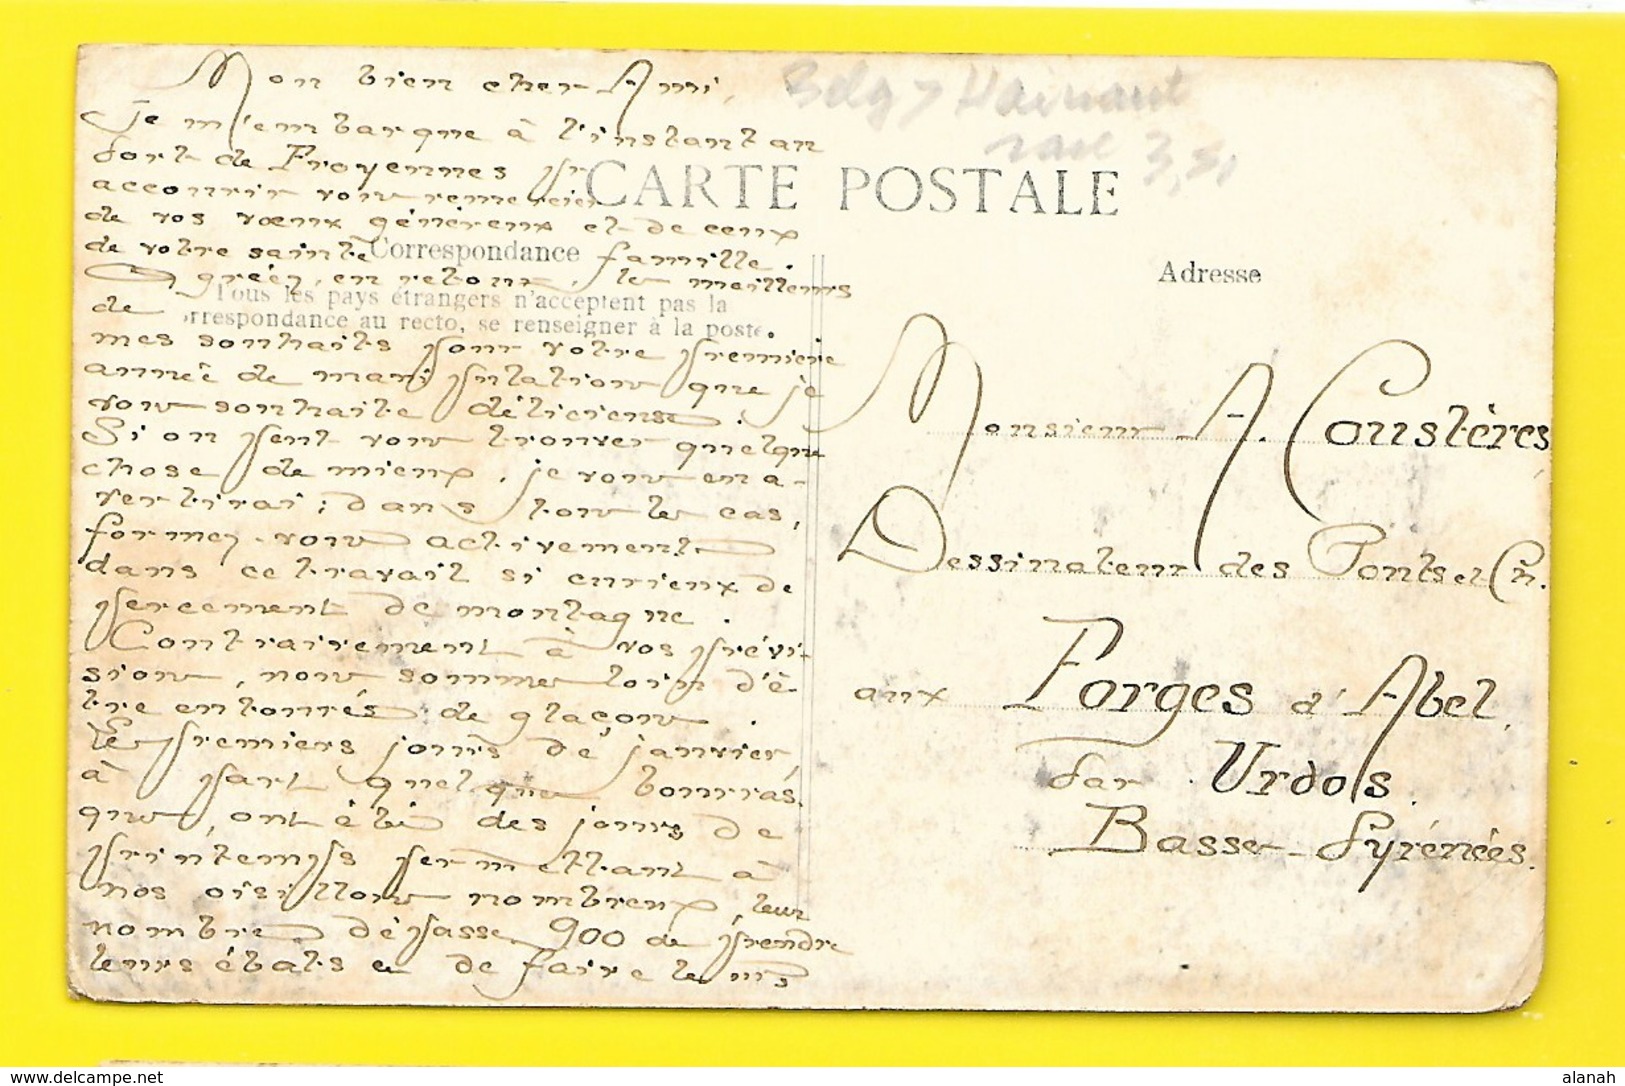 Mon bien cher Ami,
Je m'embarque à l'instant au
fort de Froyennes pr
accourir vous remercier
de vos vœux généreux et de ceux
de votre sainte famille.
Agréez, en retour, les meilleurs
de
mes souhaits pour votre première
année de manipulations que je
vous souhaite délicieuse.
Si on peut vous trouver quelque
chose de mieux, je vous en a-
vertirai; dans tous les cas,
formez-vous activement
dans ce travail si curieux de
percement de montagne.
Contrairement à vos prévi-
sions, nous sommes loin d'ê-
tre entourés de glaçons.
Les premiers jours de janvier,
à part quelques bourras
ques, ont été des jours de
printemps permettant à
nos oisillons nombreux, leur
nombre dépasse 900 de prendre
leurs ébats et de faire leurs
Belg > Hainaut
rare 3,50
CARTE POSTALE
Correspondance
Tous les pays étrangers n'acceptent pas la
rrespondance au recto, se renseigner à la poste.
Adresse
Monsieur A. Coustères
Dessinateur des Ponts et Ch.
aux Forges d'Abel,
par Urdos.
Basses-Pyrénées.
delcampe.net
alanah